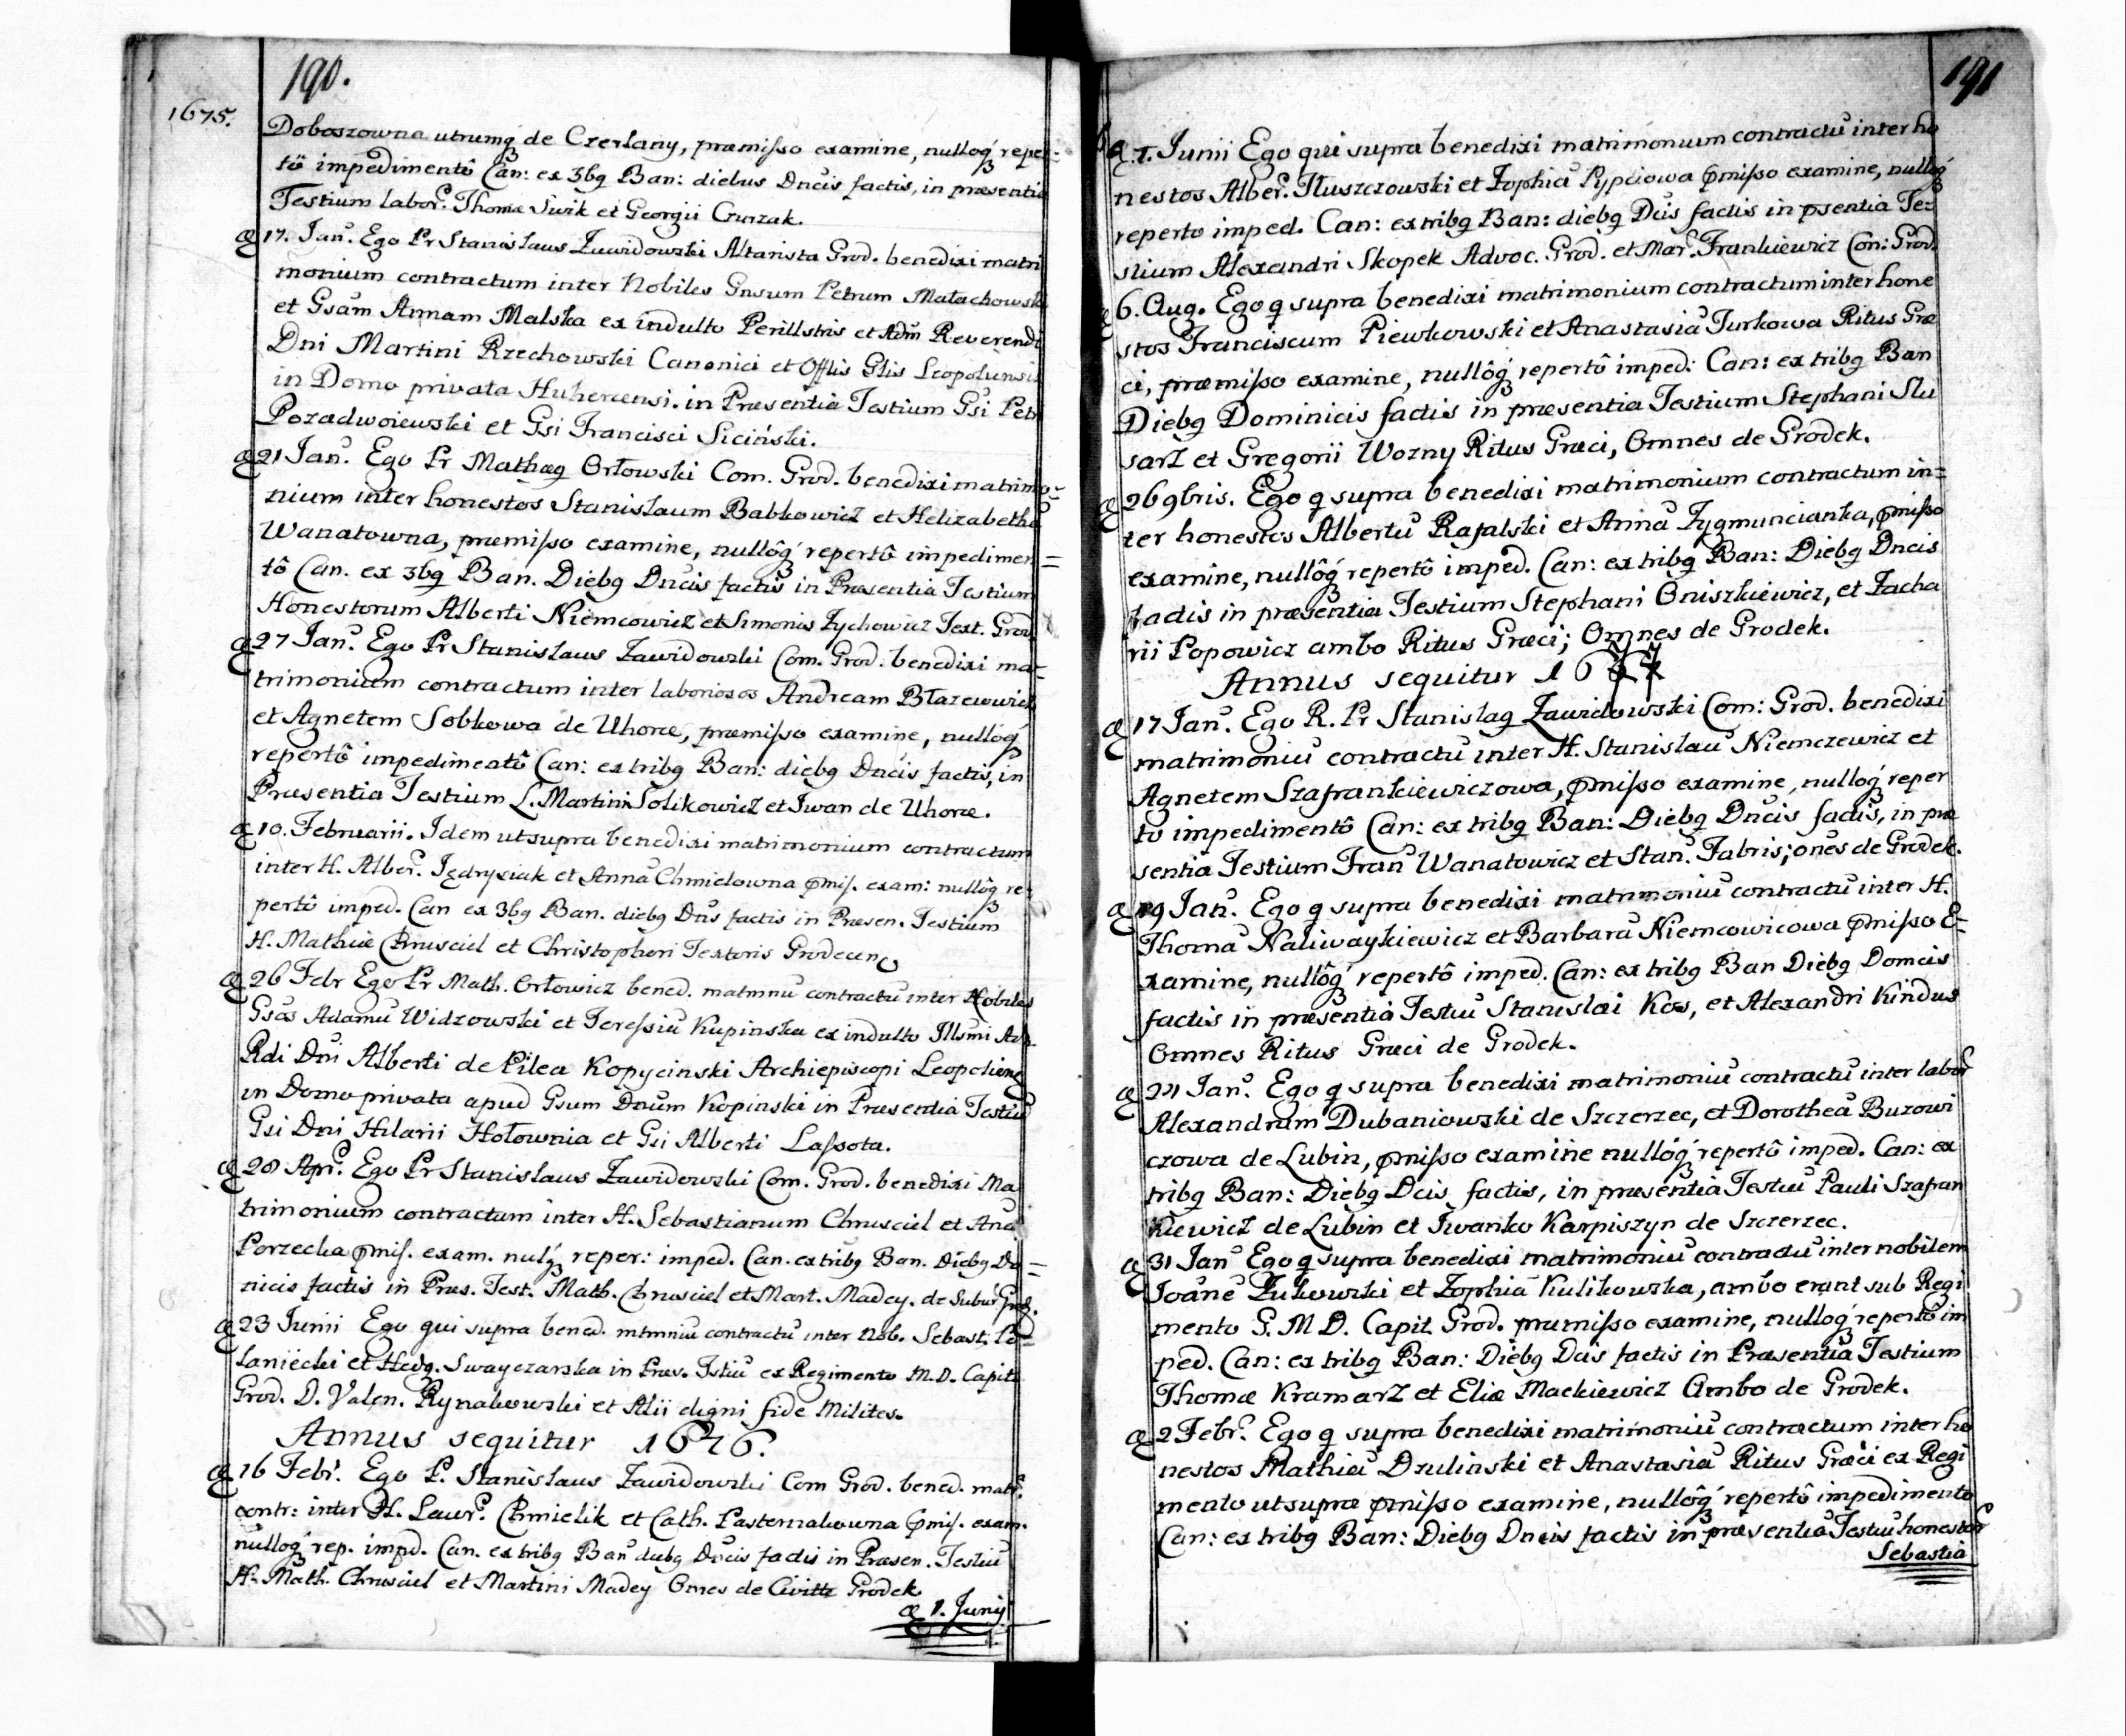 190.
1675.
Doboszowna utrumq de Czerlany, præmisso examine, nulloq reper=
tô impedimentô Can: ex 3bq Ban: diebus Dncis factis, in præsentia
Testium labor. Thomæ Swik et Georgii Gurzak.
17. Jan. Ego Pr Stanislaus Zawidowski Altarista Grod. benedixi matri
monium contractum inter Nobiles Gnsum Petrum Małachowski
et Gsam Annam Malska ex indulto Perillstris et Adm Reverendi
Dni Martini Rzechowski Canonici et Offlis Glis Leopoliensis
in Domo privata Huhercensi. in Præsentia Testium Gsi Petri
Pozadwoiewski et Gsi Francisci Siciński.
21 Jan. Ego Pr Mathæq Orłowski Com. Grod. benedixi matrimo=
nium inter honestos Stanislaum Babkowicz et Helizabetha
Wanatowna, præmisso examine, nullôq repertô impedimen=
tô Can. ex 3bq Ban. Diebq Dncis factis in Præsentia Testium
Honestorum Alberti Niemcowicz et Simonis Zychowicz Text. Grod.
27 Jan. Ego Pr Stanislaus Zawidowski Com. Grod. benedixi ma=
trimonium contractum inter laboriosos Andream Błazewowicz
et Agnetem Sobkowa de Uhorce, præmisso examine, nulloq
repertô impedimentô Can: ex tribq Ban: diebq Dncis factis, in
Præsentia Testium L. Martini Solikowicz et Iwan de Uhorce.
10. Februarii. Idem ut supra benedixi matrimonium contractum
inter H. Alber. Jędrysiak et Anna Chmielowna pmis. exam: nullôq re=
pertô imped. Can ex 3bq Ban. diebq Dns factis in Præsen. Testium
H. Mathiæ Chrusciel et Christophori Textoris Grodecen
26 Febr Ego Pr Math. Orłowicz bened. matmnu contractu inter Nobiles
Gsos Adamu Widzowski et Teressiu Kupinska ex indulto Illsmi Adm.
Rdi Dni Alberti de Pilca Kopycinski Archiepiscopi Leopolienq
in Domo privata apud Gsum Dnum Kopinski in Præsentia Testiu
Gsi Dni Hilarii Hołownia et Gsi Alberti Lassota.
28 Apr. Ego Pr Stanislaus Zawidowski Com. Grod. benedixi Ma
trimonium contractum inter H. Sebastianum Chrusciel et Ana
Porzecka pmis. exam. nulq reper: imped. Can. ex tribq Ban. Diebq Do=
nicis factis in Præs. Test. Math. Chrusciel et Mart. Madey. de Subur Grod.
23 Junii Ego qui supra bened. mtmniu contractu inter Nob. Sebast. Po=
laniecki et Hedq. Swayczarska in Præs. Tstiu ex Regimento M.D. Capit
Grod. D. Valen. Rynakowski et Alii digni fide Milites.
Annus sequitur 1676.
16 Febr. Ego P. Stanislaus Zawidowski Com Grod. bened. matr.
contr: inter H. Lawr. Chmielik et Cath. Pasternakowna pmis. exam.
nulloq rep. impd. Can. ex tribq Ban diebq Dncis factis in Præsen. Testiu
H. Math. Chrusciel et Martini Madey Omes de Civitte Grodek
1. Junij
191
1. Iunii Ego qui supra benedixi matrimonium contractu inter ho
nestos Alber. Tłuszczowski et Zophia Pypciowa pmisso examine, nulloq
reperto imped. Can: ex tribq Ban: diebq Dcis factis in psentia Te=
stium Alexandri Skopek Advoc. Grod. et Mar. Frankiewicz Con: Grod.
6. Aug. Ego q supra benedixi matrimonium contractum inter hone
stos Franciscum Piewkowski et Anastasia Turkowa Ritus Græ
ci, præmisso examine, nullôq repertô imped: Can: ex tribq Ban
Diebq Dominicis factis in præsentia Testium Stephani Slu
sarz et Gregorii Wozny Ritus Græci, Omnes de Grodek.
26 9bris. Ego q supra benedixi matrimonium contractum in=
ter honestos Albertu Rafalski et Anna Zygmuncianka, pmisso
examine, nullôq repertô imped. Can: ex tribq Ban: Diebq Dncis
factis in præsentia Testium Stephani Oniszkiewicz, et Zacha
rii Popowicz ambo Ritus Græci; Omnes de Grodek.
Annus sequitur 1677
17 Jan. Ego R. Pr Stanislaq Zawidowski Com: Grod. benedixi
matrimoniu contractu inter H. Stanislau Niemczewicz et
Agnetem Szafrankiewiczowa, pmisso examine, nulloq reper
to impedimentô Can: ex tribq Ban: Diebq Dncis factis, in præ
sentia Testium Fran Wanatowicz et Stan. Fabris; ones de Grodek.
19 Jan. Ego q supra benedixi matrimoniu contractu inter H.
Thoma Naliwaykiewicz et Barbara Niemcowicowa pmisso E=
xamine, nullôq repertô imped. Can: ex tribq Ban Diebq Domcis
factis in præsentia Testiu Stanislai Kos, et Alexandri Kindus
Omnes Ritus Græci de Grodek.
24 Jan. Ego q supra benedixi matrimoniu contractu inter labor
Alexandrum Dubaniowski de Szczerzec, et Dorothea Buzowi
czowa de Lubin, pmisso examine nullôq repertô imped. Can: ex
tribq Ban: Diebq Dcis factis, in præsentia Testiu Pauli Szafran
kiewicz de Lubin et Iwanko Karpiszyn de Szczerzec.
31 Jan Ego q supra benedixi matrimoniu contractu inter nobilem
Joane Zukowski et Zophia Kulikowska, ambo erant sub Regi
mento G. M D. Capit. Grod. præmisso examine, nulloq repertô im
ped. Can: ex tribq Ban: Diebq Dcis factis in Præsentia Testium
Thomæ Kramarz et Eliæ Mackiewicz Ambo de Grodek.
2 Febr. Ego q supra benedixi matrimoniu contractum inter ho
nestos Mathia Dzulinski et Anastasia Ritus Græci ex Regi
mento ut supra pmisso examine, nullôq repertô impedimento
Can: ex tribq Ban: Diebq Dncis factis in præsentia Testiu honestor
Sebastia